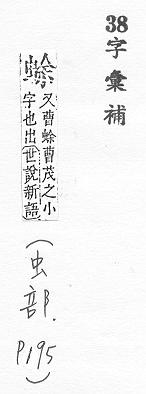 38字彙補
蜍
又曹蜍曹茂之小
字也出世說新語
(虫部.
P195)